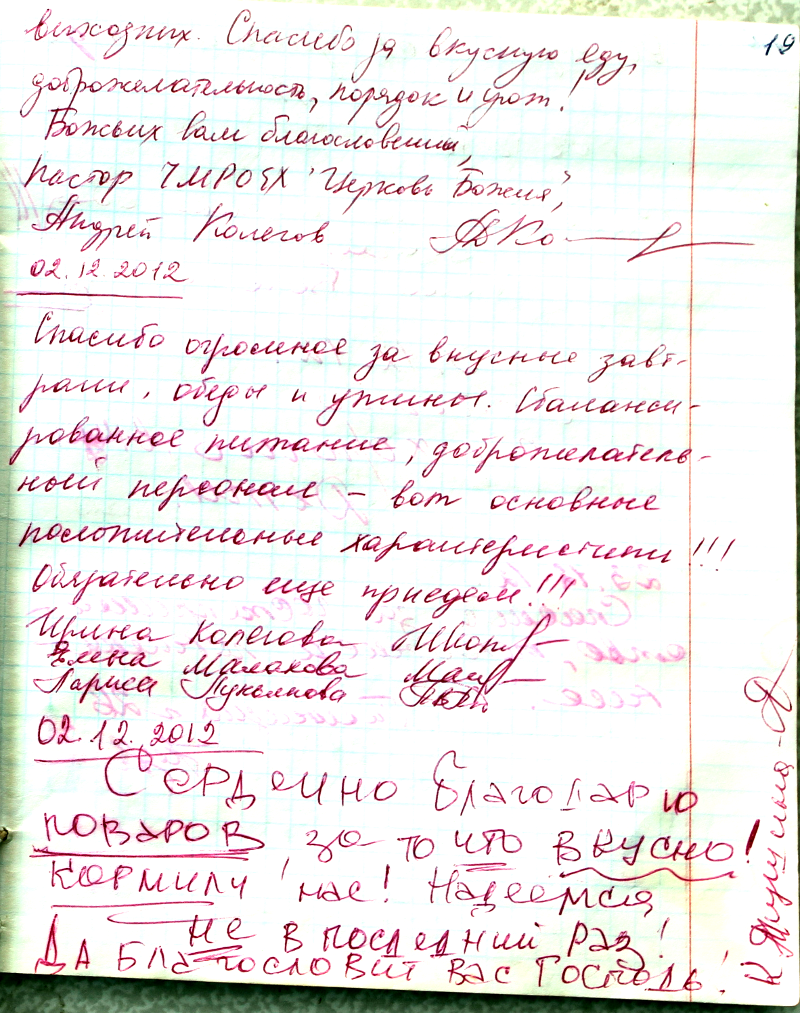 19
выходных. Спасибо за вкусную еду,
доброжелательность, порядок и уют!
Божьих вам благословений,
пастор ЧМРОЕХ "Церковь Божия",
Андрей Колегов
02.12.2012
Спасибо огромное за вкусные завт-
раки, обеды и ужины. Сбаланси-
рованное питание, доброжелатель-
ный персонал – вот основные
положительные характеристики!!!
Обязательно еще приедем!!!
Ирина Колегова
Елена Малахова
Лариса Лукьянова
02.12.2012
Сердечно благодарю
поваров, за то что вкусно!
кормили нас! Надеемся
не в последний раз!
Да благословит вас Господь!